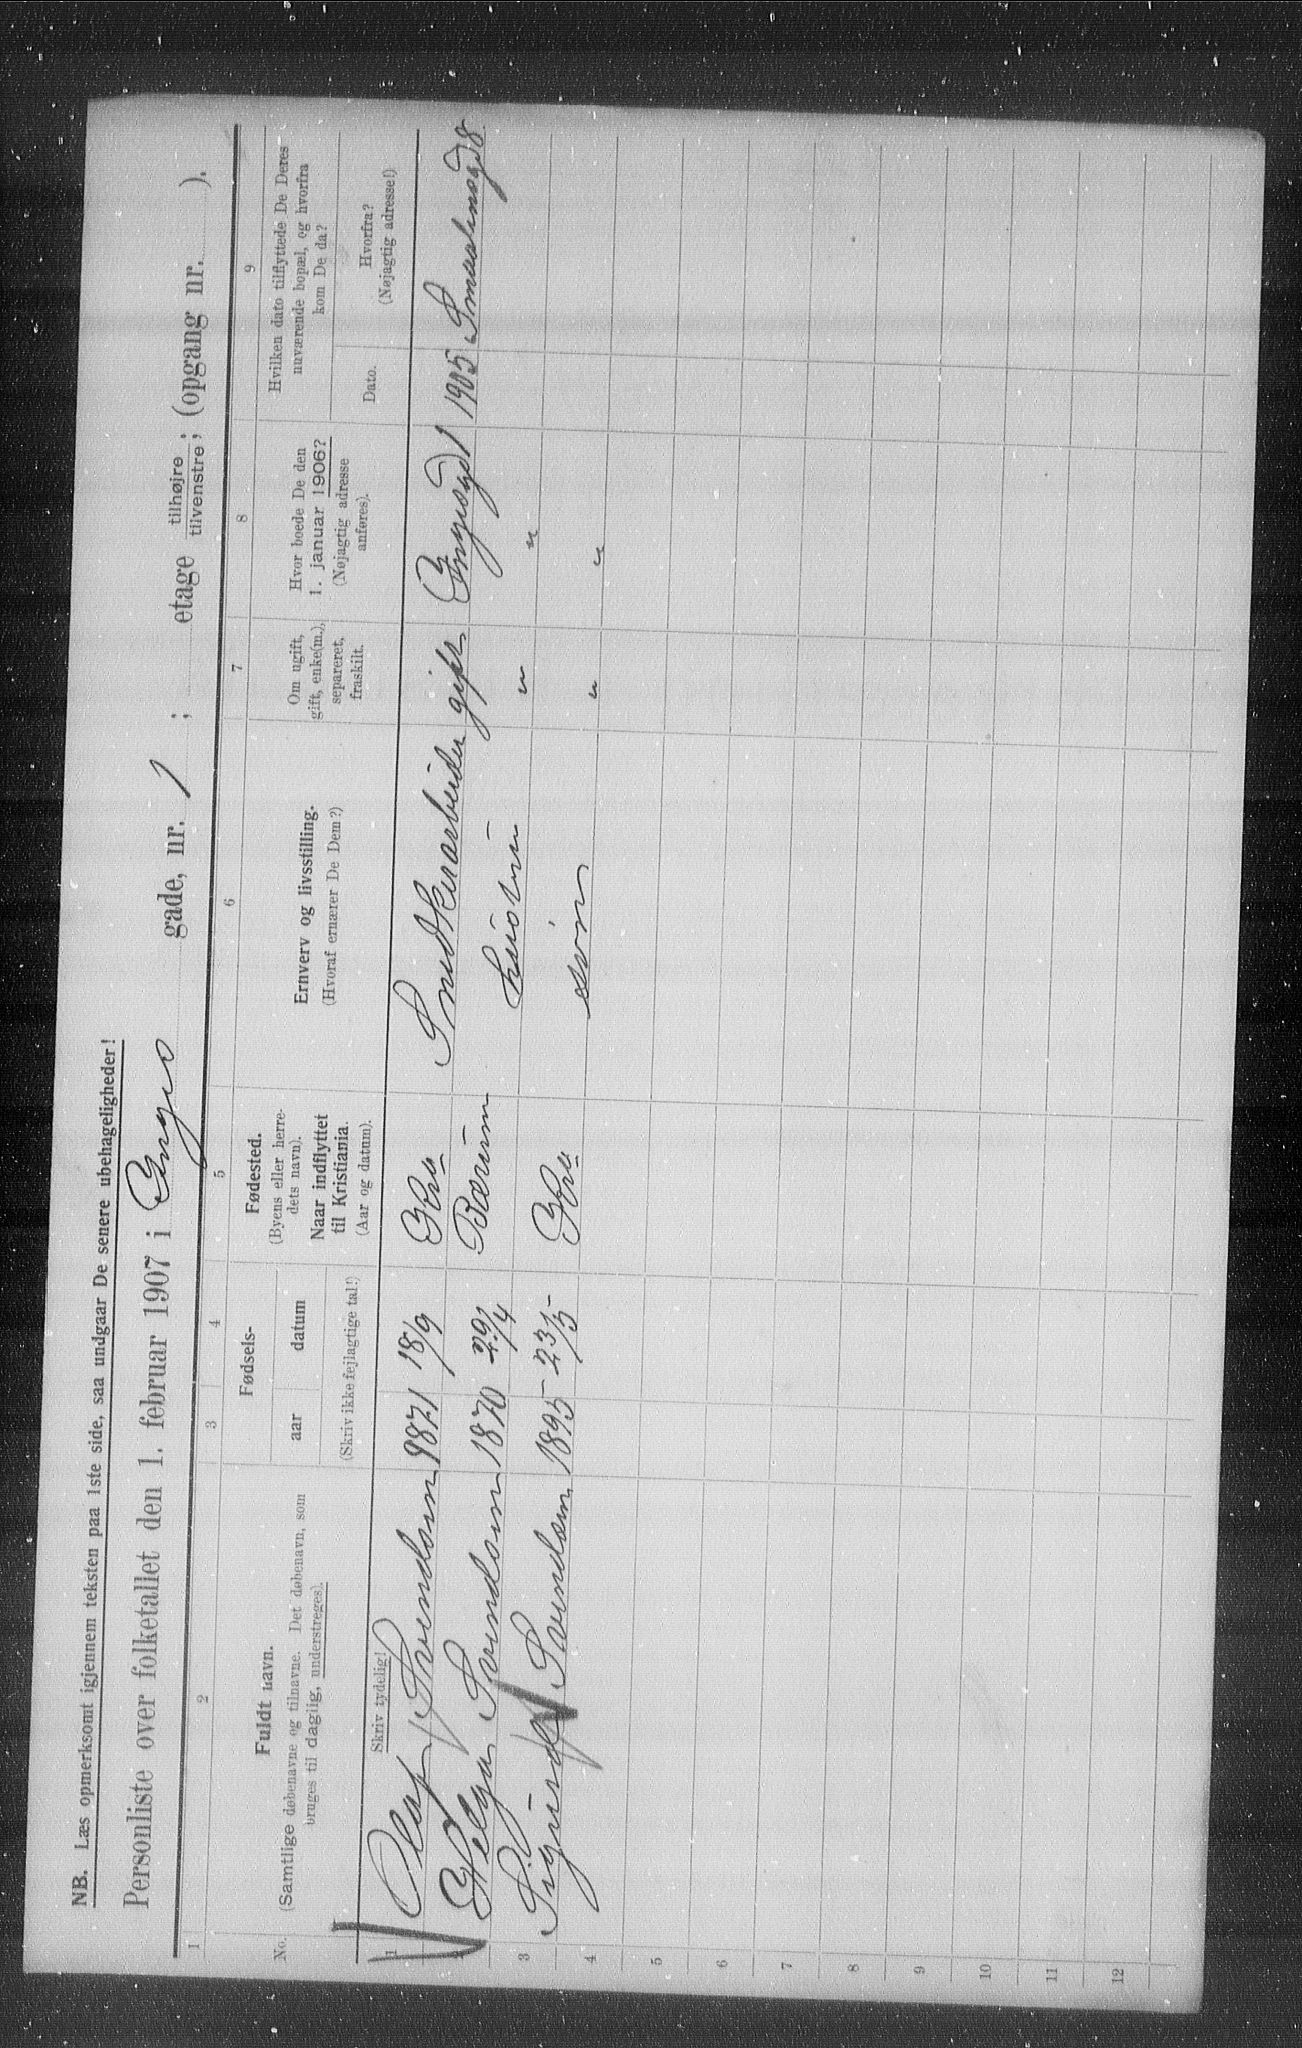 NB. Læs opmerksomt igjennem teksten paa 1ste side, saa undgaar De senere ubehageligheder!
Personliste over folketallet den 1. februar 1907 i Enges gade, nr. 1 ; etage tilhøjre tilvenstre; (opgang nr. ).
1 2 3 4 5 6 7 8 9
No.
Fuldt navn.
(Samtlige døbenavne og tilnavne. Det døbenavn, som
bruges til daglig, understreges).
Skriv tydelig!
Fødsels-
aar datum
(Skriv ikke fejlagtige tal!)
Fødested.
(Byens eller herre-
dets navn).
Naar indflyttet
til Kristiania.
(Aar og datum).
Erhverv og livsstilling.
(Hvoraf ernærer De Dem?)
Om ugift,
gift, enke(m.),
separeret,
fraskilt.
Hvor boede De den
1. januar 1906?
(Nøjagtig adresse
anføres).
Hvilken dato tilflyttede De Deres
nuværende bopæl, og hvorfra
kom De da?
Dato.
Hvorfra?
(Nøjagtig adresse!)
1 Olaf Svendsen 1871 18/9 Kra Snedkerarbeider gift Engesgd 1 1905 Smaalensgd 8
2 Helga Svendsen 1870 29/4 Bærum hustru " "
3 Sigurd Svendsen 1895 23/5 Kra søn " "
4
5
6
7
8
9
10
11
12